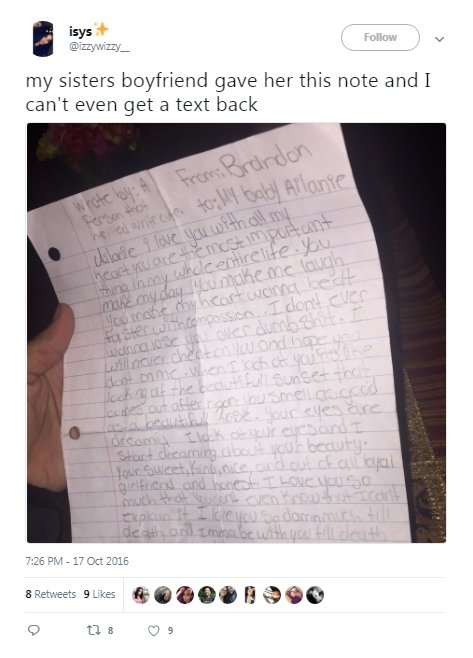 isys✨
@izzywizzy__
Follow
my sisters boyfriend gave her this note and I
can't even get a text back
Wrote by: A
Person that
helped write
From: Brandon
to: MY baby Ailanie
Ailanie I love you with all my
heart you are the most important
thing in my whole entire life. You
make my day. You make me laugh
You make my heart wanna beat
faster with compassion. I dont ever
wanna lose you over dumb shit. I
will never cheat on you and hope you
dont on me. When I look at you its like
looking at the beautifull sunset that
comes out after noon you smell as good
as a beautifull rose. Your eyes are
dreamy I look at your eyes and I
start dreaming about your beauty.
Your sweet, kind, nice, and out of all loyal
girlfriend and honest I Love you so
much that you dont even know that I cant
explain it I love you so damn much till
death and Imma be with you till death
7:26 PM - 17 Oct 2016
8 Retweets 9 Likes
8 9